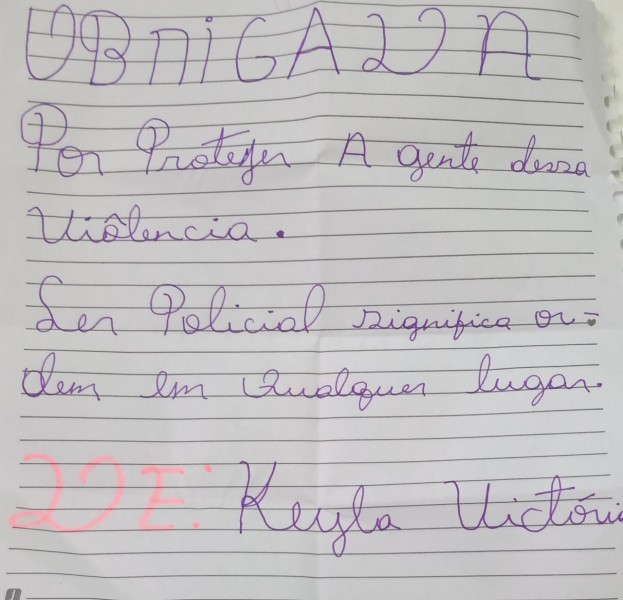 OBRIGADA
Por Proteger A gente dessa
Violência.
Ser Policial significa or-
dem em Qualquer lugar.
DE: Keyla Victória